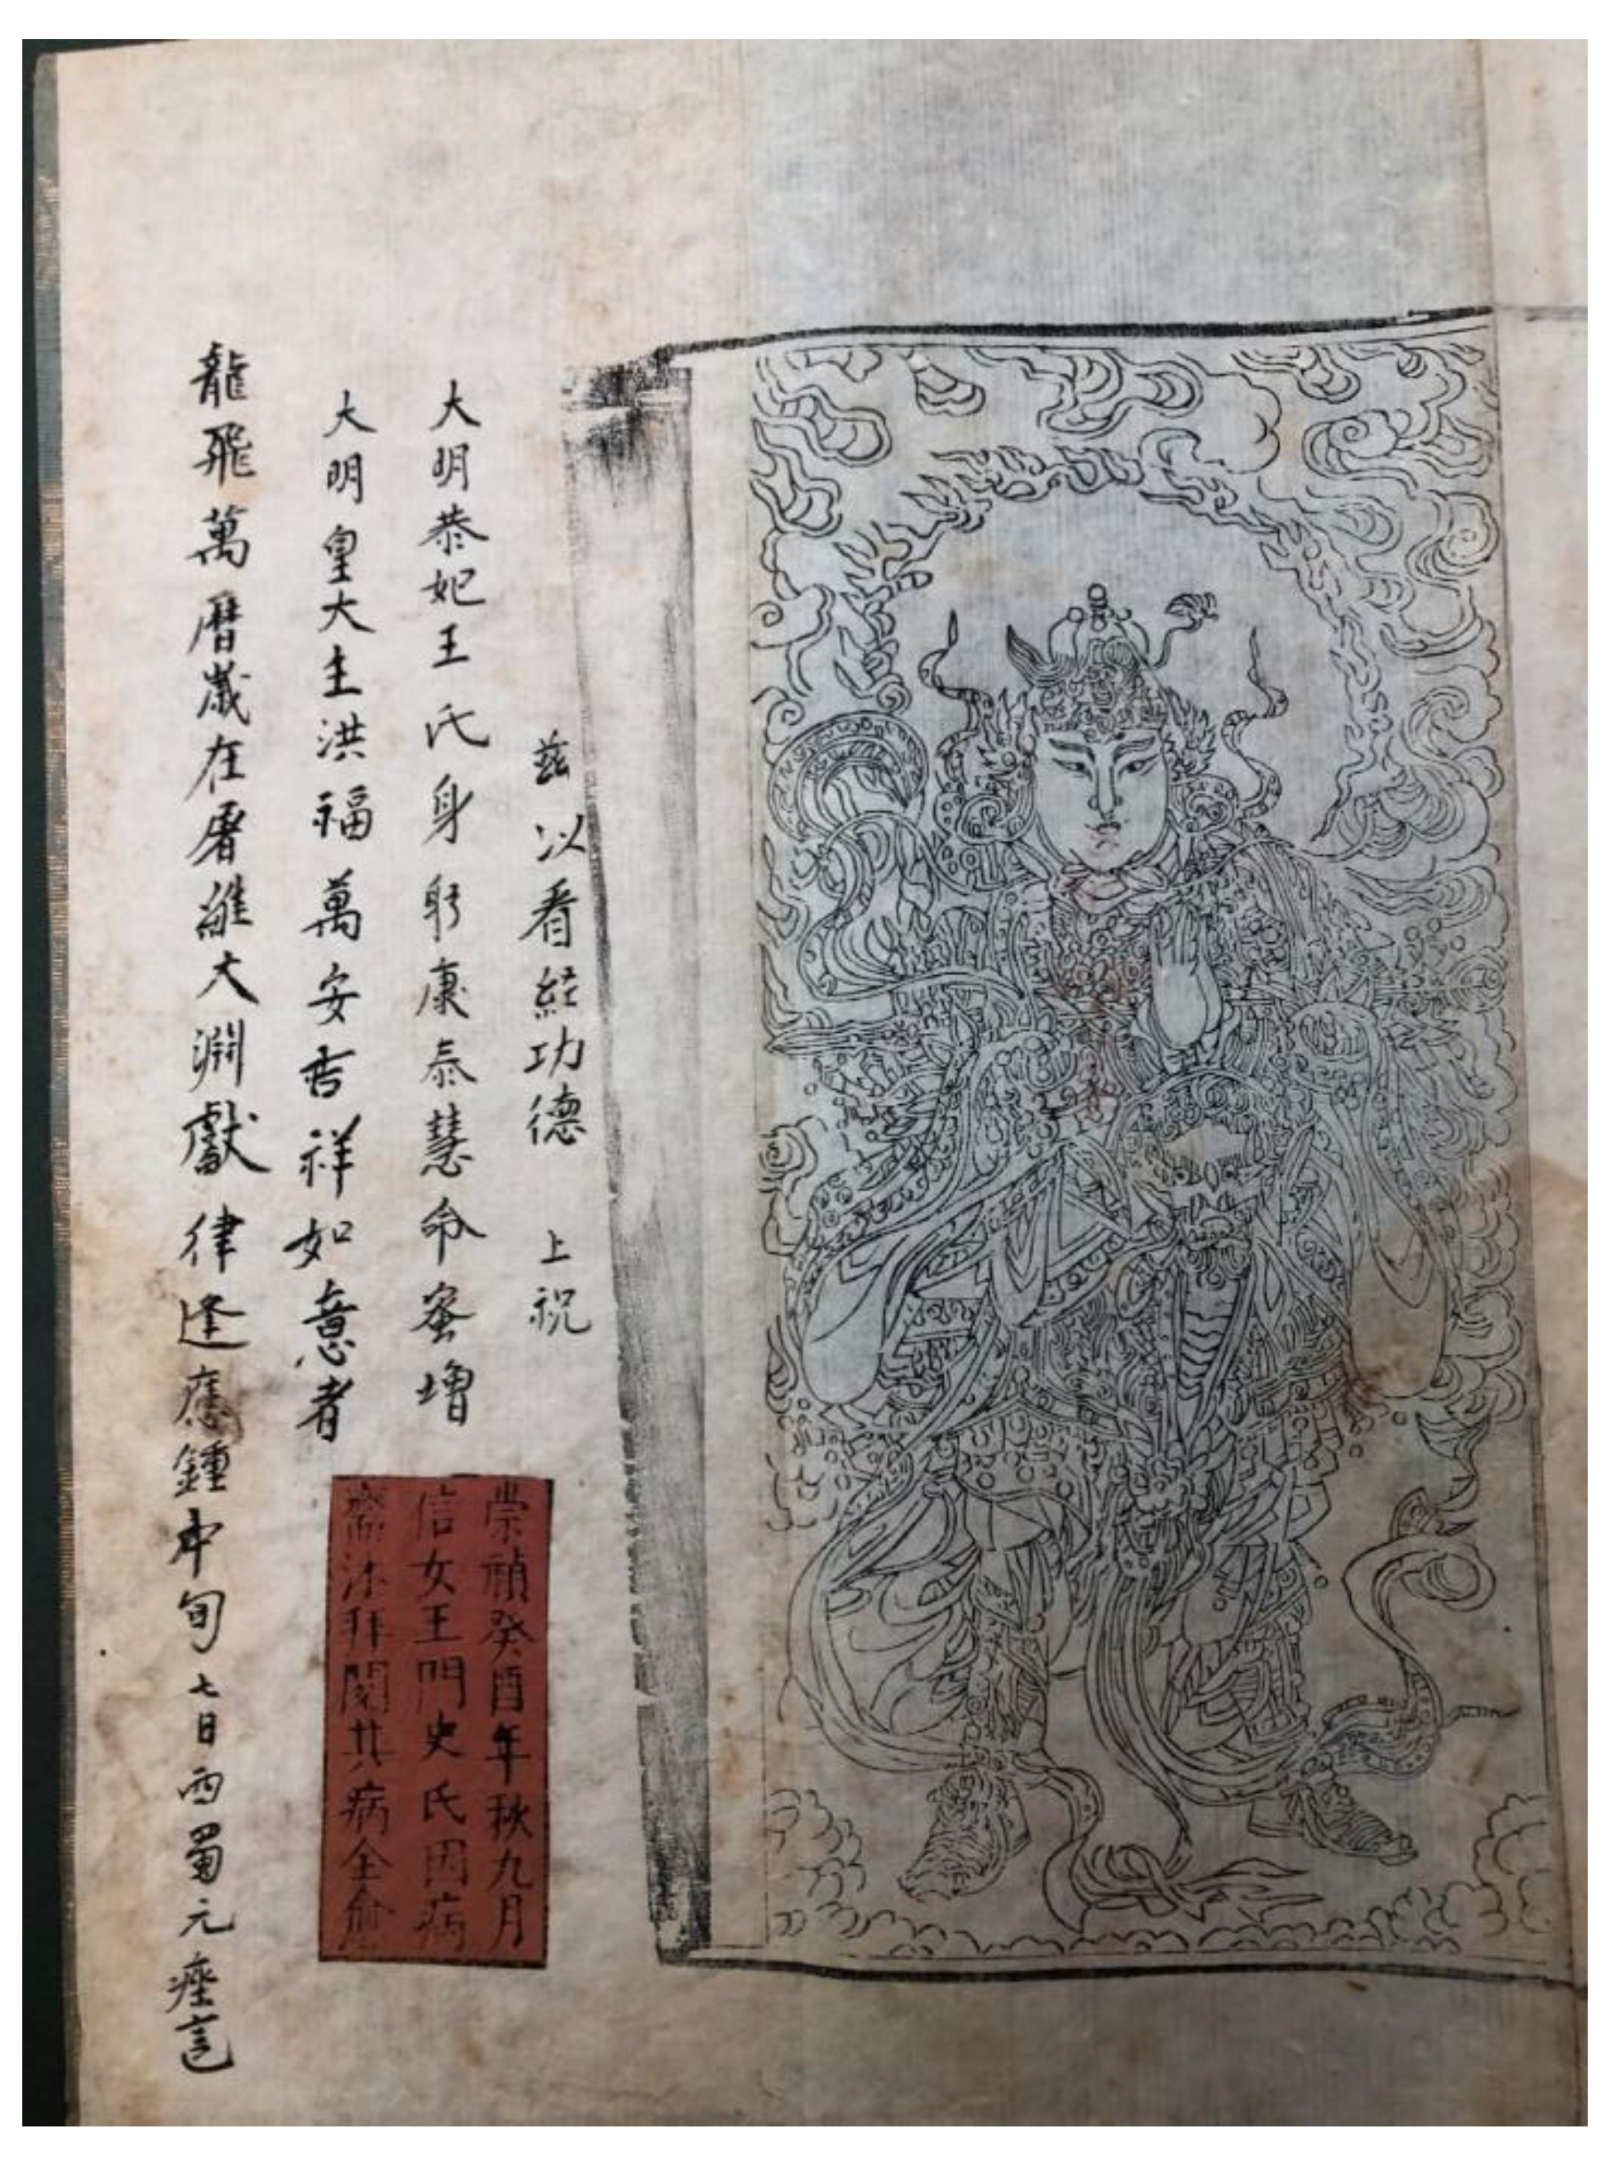 茲以看経功德　上祝
大明恭妃王氏身躬康泰慧命蜜增
大明皇大主洪福萬安吉祥如意者
龍飛萬曆歲在屠維大淵獻律逢應鍾中旬七日西蜀元痊言
崇禎癸酉年秋九月
信女王門史氏因病
齋沐拜閱其病全愈